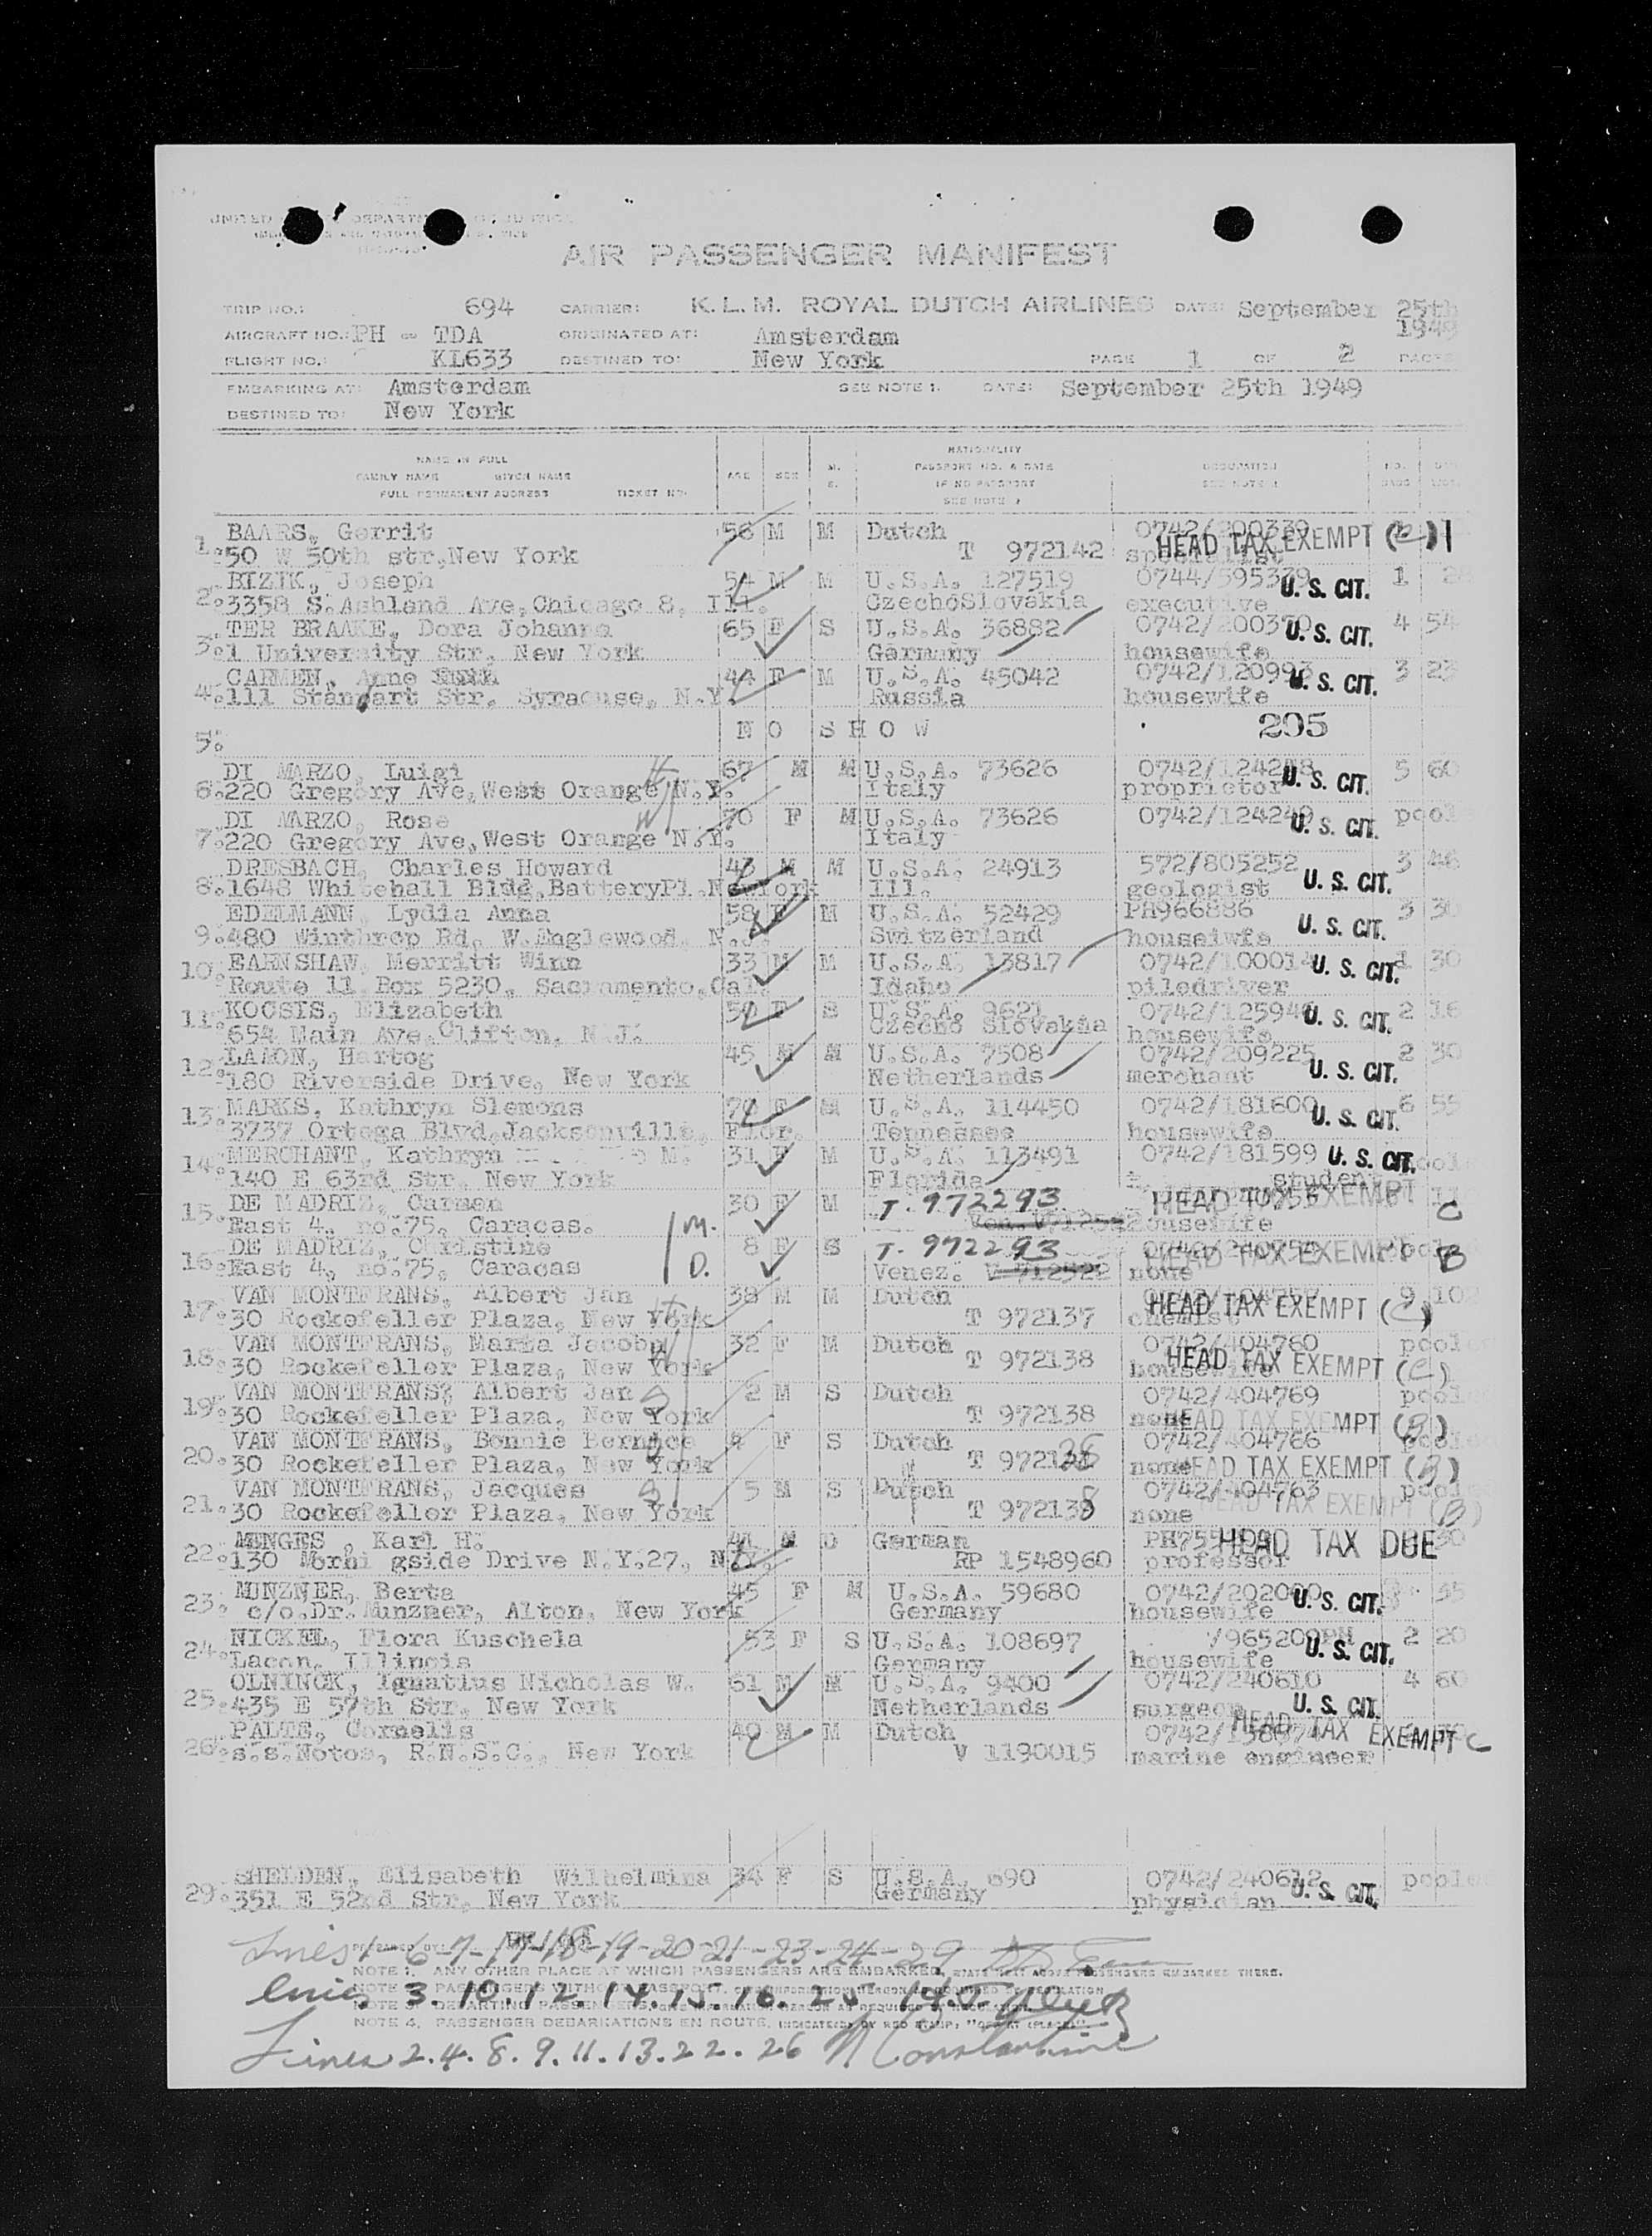 AIR PASSENGER MANIFEST
TRIP NO.: 694 CARRIER: K.L.M. ROYAL DUTCH AIRLINES DATE: September 25th 1949
AIRCRAFT NO.: PH - TDA ORIGINATED AT: Amsterdam
FLIGHT NO.: KL633 DESTINED TO: New York PAGE 1 OF 2 PAGES
EMBARKING AT: Amsterdam SEE NOTE 1. DATE: September 25th 1949
DESTINED TO: New York
NAME IN FULL
FAMILY NAME GIVEN NAME
FULL PERMANENT ADDRESS TICKET NO.
AGE SEX M. S.
NATIONALITY
PASSPORT NO. & DATE
IF NO PASSPORT
SEE NOTE 2
OCCUPATION
NO. BAGS
BAARS, Gerrit 56 M M Dutch 0742/200339
1. 50 W 50th str, New York T 972142 specialist HEAD TAX EXEMPT (C) 1
BIZIK, Joseph 54 M M U.S.A. 127519 0744/595379 1
2. 3358 S. Ashland Ave, Chicago 8, Ill. CzechoSlovakia executive U.S. CIT.
TER BRAAKE, Dora Johanna 65 F S U.S.A. 36882 0742/200370 4 54
3. 1 University Str. New York Germany housewife U.S. CIT.
CARMEN, Anne 44 F M U.S.A. 45042 0742/120993 3 23
4. 111 Standart Str. Syracuse, N.Y. Russia housewife U.S. CIT.
5. NO SHOW 295
DI MARZO, Luigi 67 M M U.S.A. 73626 0742/124248 5 60
6. 220 Gregory Ave, West Orange N.Y. Italy proprietor U.S. CIT.
DI MARZO, Rose 70 F M U.S.A. 73626 0742/124249 pool
7. 220 Gregory Ave, West Orange N.Y. Italy U.S. CIT.
DRESBACH, Charles Howard 43 M M U.S.A. 24913 572/805252 3 46
8. 1648 Whitehall Bldg, BatteryPl. NewYork Ill. geologist U.S. CIT.
EDELMANN, Lydia Anna 58 F M U.S.A. 52429 PH966886 3 30
9. 480 Winthrop Rd. W. Englewood, N.J. Switzerland houseiwfe U.S. CIT.
EARNSHAW, Merritt Winn 33 M M U.S.A. 13817 0742/100014 1 30
10. Route 11 Box 5230, Sacramento, Cal. Idaho piledriver U.S. CIT.
KOCSIS, Elizabeth 50 F S U.S.A. 9621 0742/125940 2 16
11. 654 Main Ave, Clifton, N.J. Czecho Slovakia housewife U.S. CIT.
LAMON, Hartog 45 M M U.S.A. 7508 0742/209225 2 30
12. 180 Riverside Drive, New York Netherlands merchant U.S. CIT.
MARKS, Kathryn Slemons 70 F M U.S.A. 114450 0742/181600 6 55
13. 3737 Ortega Blvd, Jacksonville, Flor. Tennessee housewife U.S. CIT.
MERCHANT, Kathryn M. 31 F M U.S.A. 113491 0742/181599 pool
14. 140 E 63rd Str. New York Florida student U.S. CIT.
DE MADRIZ, Carmen 30 F M T. 972293 HEAD TAX EXEMPT 11
15. East 4, no.75, Caracas. M. Ven. housewife C
DE MADRIZ, Christine 8 F S T. 972293 HEAD TAX EXEMPT
16. East 4, no.75, Caracas D. Venez. V 712522 none B
VAN MONTFRANS, Albert Jan 38 M M Dutch 9 102
17. 30 Rockefeller Plaza, New York T 972137 chemist HEAD TAX EXEMPT (C)
VAN MONTFRANS, Maria Jacoba 32 F M Dutch 0742/404760 pooled
18. 30 Rockefeller Plaza, New York T 972138 housewife HEAD TAX EXEMPT (C)
VAN MONTFRANS, Albert Jan 2 M S Dutch 0742/404769 pooled
19. 30 Rockefeller Plaza, New York T 972138 none HEAD TAX EXEMPT (B)
VAN MONTFRANS, Bonnie Bernice F S Dutch 0742/404766 pooled
20. 30 Rockefeller Plaza, New York T 972138 none HEAD TAX EXEMPT (B)
VAN MONTFRANS, Jacques 5 M S Dutch 0742/404763 pooled
21. 30 Rockefeller Plaza, New York T 972138 none HEAD TAX EXEMPT (B)
MENGES, Karl H. 41 M D German HEAD TAX DUE 30
22. 130 Morni gside Drive N.Y.27, N.Y. RP 1548960 professor
MUNZNER, Berta 45 F M U.S.A. 59680 55
23. c/o. Dr. Munzner, Alton, New York Germany housewife U.S. CIT.
NICKEL, Flora Kuschela 53 F S U.S.A. 108697 2 20
24. Lacon, Illinois Germany housewife U.S. CIT.
OLNINCK, Ignatius Nicholas W. 61 M M U.S.A. 9400 0742/240610 4 60
25. 435 E 57th Str. New York Netherlands surgeon U.S. CIT.
PALTE, Cornelis 40 M M Dutch HEAD TAX EXEMPT C
26. s.s. Notos, R.N.S.C., New York V 1190015 marine engineer
SHELDEN, Elisabeth Wilhelmina 34 F S U.S.A. 690 0742/240612 pooled
29. 351 E 52nd Str. New York Germany physician U.S. CIT.
Lines 1-6-7-17-18-19-20-21-23-24-29
NOTE 1. ANY OTHER PLACE AT WHICH PASSENGERS ARE EMBARKED, STATE THAT ABOVE PASSENGERS EMBARKED THERE.
Lines 3.10.12.14.15.16.25.
NOTE 4. PASSENGER DEBARKATIONS EN ROUTE, INDICATED BY RED STAMP:
Lines 2.4.8.9.11.13.22.26 Constantine